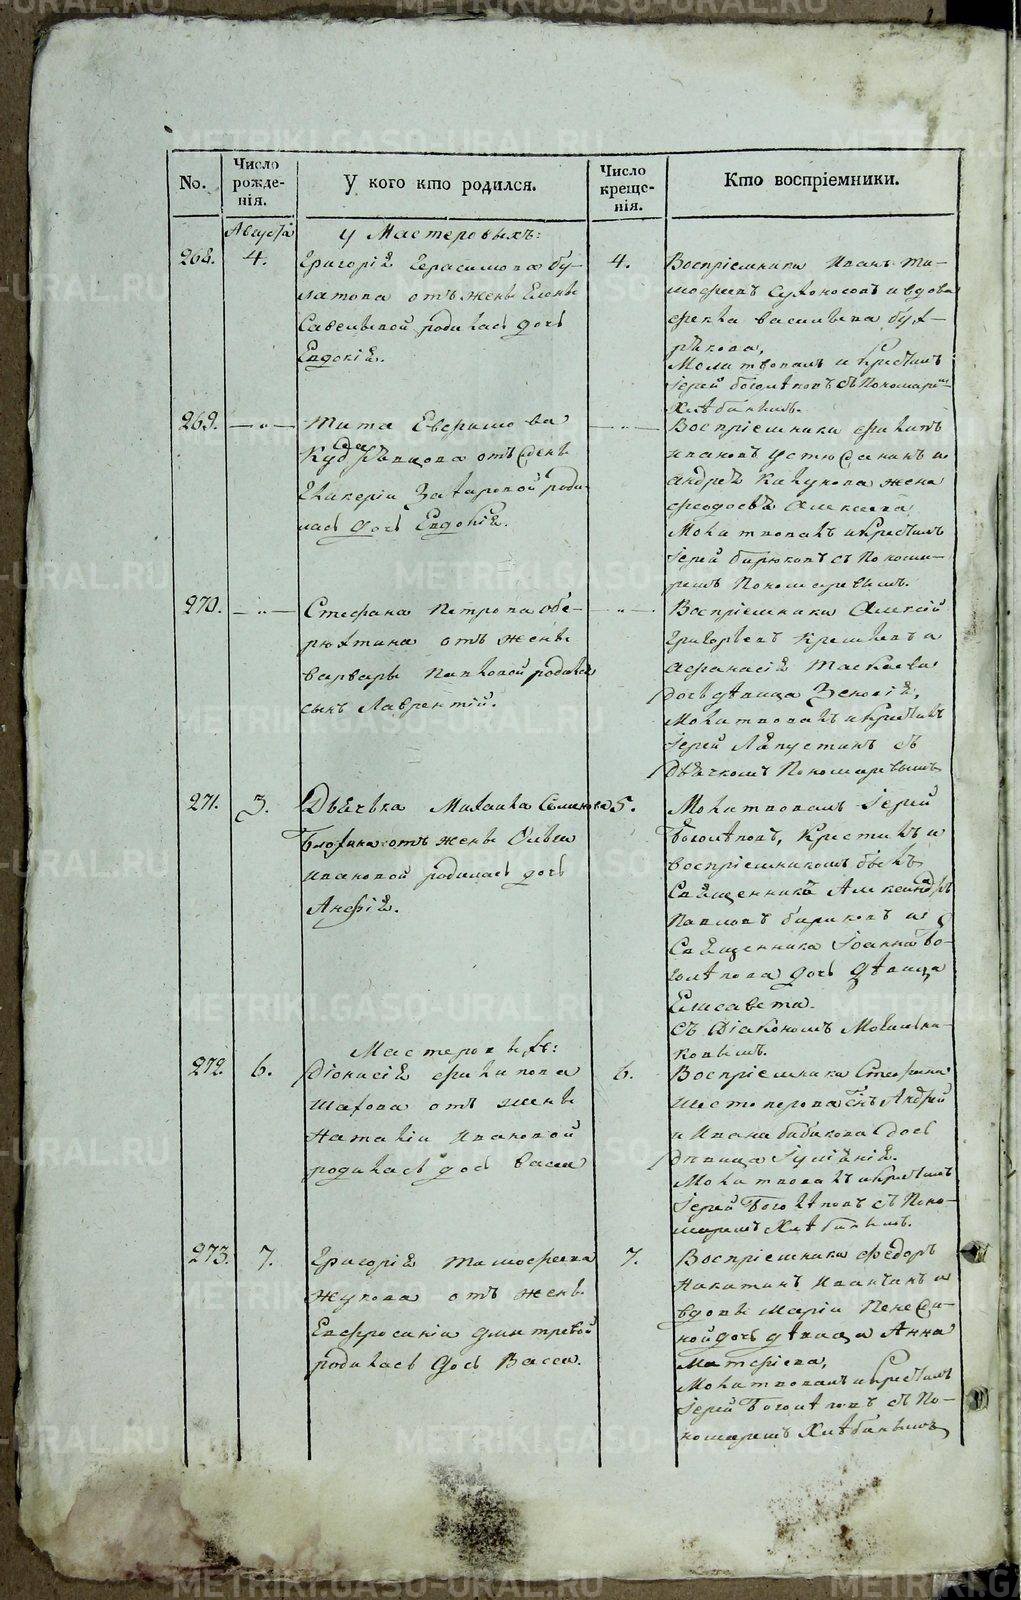 No.
Число рожде-
нія.
У кого кто родился.
Число креще-
нія.
Кто воспріемники.
Августа
У Мастеровыхъ:
268.
4.
Григорій Герасимова Бу-
латова отъ жены Елены
Савельевой родилась дочь
Евдокій.
4.
Воспріемники Иванъ Ти-
мофеевъ Сухоносовъ и вдова
Васильева
Молитвовалъ и крестилъ
Іерей Боголѣповъ съ Пономарем
Хлѣбинымъ.
269.
— " —
Тита Ефимова
отъ жены
Гликеріи Захаровой роди-
лась дочь Евдокій.
— " —
Воспріемники Филипъ
Ивановъ Устюсанинъ и
Андрей жена
Феодосья Алексеева
Молитвовалъ и крестилъ
Іерей Бирюковъ съ Понома-
ремъ Пономаревымъ.
270.
— " —
Стефана Петрова Обе-
рюхтина отъ жены
Варвары Павловой родился
сынъ Лаврентій.
— " —
Воспріемники Алексей
Григорьевъ и
Афанасій
дочь дѣвица Зеновій,
Молитвовалъ и крестилъ
Іерей Ляпустинъ съ
Дьячкомъ Пономаревымъ
271.
3.
Дьячька Михаила Семенова
отъ жены Ольги
Ивановой родилась дочь
Анфій.
5.
Молитвовалъ Іерей
Боголѣповъ, Крестилъ и
воспріемникомъ былъ
Священникъ Александръ
Павловъ Бирюковъ и
Священника Іоанна Бо-
голѣпова дочь дѣвица
Елисавета.
съ Діакономъ
272.
6.
Мастеровыхъ:
Діонисій Филипова
Шахова отъ жены
Наталіи Ивановой
родилась дочь Васса
6.
Воспріемники Стефана
Шестоперова сынъ Андрей
и Ивана Бабикова дочь
дѣвица Іуліаній.
Молитвовалъ и крестилъ
Іерей Боголѣповъ съ Поно-
маремъ Хлѣбинымъ.
273.
7.
Григорій Тимофеева
Жукова отъ жены
Евфросиніи Дмитревой
родилась дочь Васса.
7.
Воспріемники Федоръ
Никитинъ и
вдовы Маріи
дочь дѣвица Анна
Матфіева,
Молитвовалъ и крестилъ
Іерей Боголѣповъ съ По-
номаремъ Хлѣбинымъ
METRIKI.GASO-URAL.RU